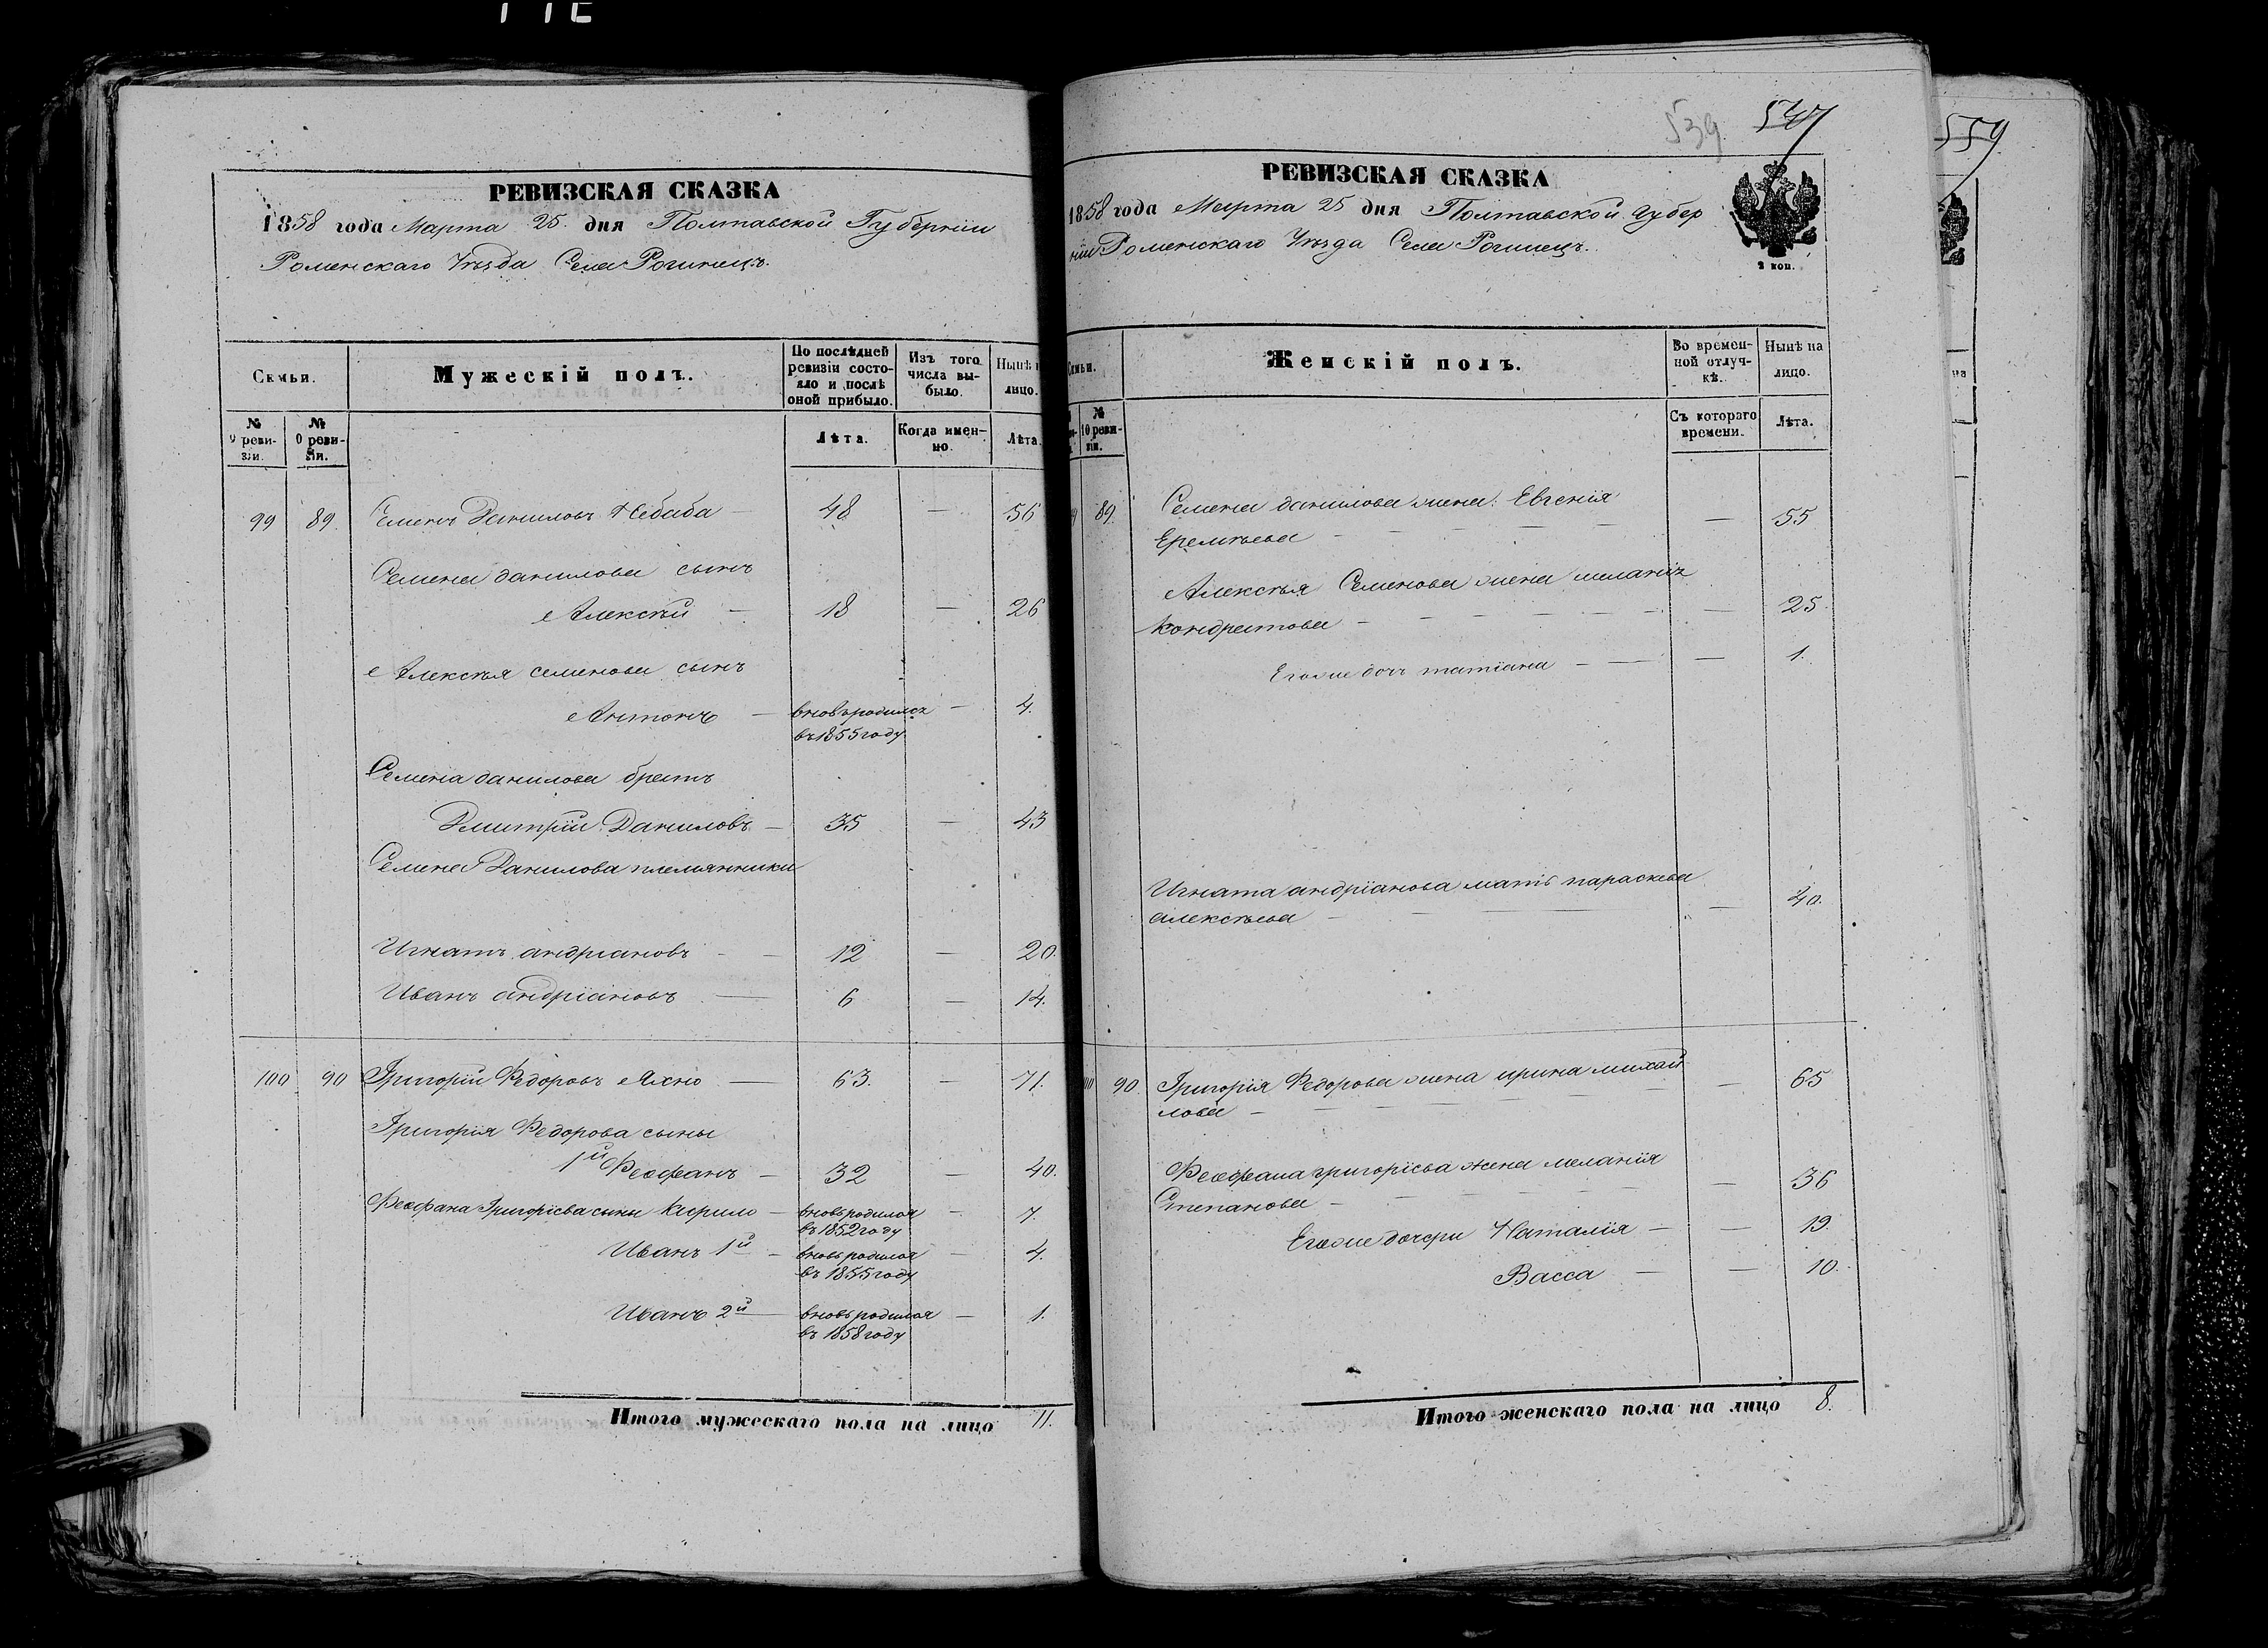 РЕВИЗСКАЯ СКАЗКА
1858 года Марта 25. дня Полтавской Губернiи
Роменскаго Уѣзда Села Рогинецъ.
Семьи.
Мужескій полъ.
По послѣдней ревизіи состояло и послѣ оной прибыло.
Изъ того числа выбыло.
Нынѣ
лицо.
№ 9 ревизіи.
№ 10 ревизіи.
Лѣта.
Когда именно.
Лѣта.
99 89. Семенъ Даниловъ Небаба — 48 — 56
Семена данилова сынъ
Алексѣй — 18 — 26
Алексѣя семенова сынъ
Антонъ — вновь родился — 4.
въ 1855 году
Семена данилова братъ
Дмитрій Даниловъ — 35 — 43
Семена Данилова племянники
Игнатъ андріановъ — 12 — 20.
Иванъ андріановъ — 6 — 14.
100 90 Григорій Федоровъ Яхно — 63. — 71.
Григорія Федорова сыны
1й Феофанъ — 32 — 40.
Феофана Григоріева сыны Кирило — вновь родился — 7.
въ 1852 году
Иванъ 1й — вновь родился — 4.
въ 1855 году
Иванъ 2й — вновь родился — 1.
въ 1858 году
Итого мужескаго пола на лицо 11.
539 547
РЕВИЗСКАЯ СКАЗКА
1858 года Марта 25 дня Полтавской губер
ніи Роменскаго Уѣзда Села Рогинецъ.
2 коп.
Семьи.
Женскій полъ.
Во временной отлучкѣ.
Нынѣ на лицо.
№ 10 ревизіи.
Съ котораго времени.
Лѣта.
89. Семена данилова жена Евгенія
Еремѣева — — 55
Алексѣя Семенова жена меланія
Кондратова — — 25.
Егоже дочь татіана — — 1.
Игната андріанова мать параскева
алексѣева — — 40.
90. Григорія Федорова жена ирина михай
лова — — 65
Феофана григоріева жена меланія
Степанова — — 36
Егоже дочери Наталія — — 19.
Васса — — 10.
Итого женскаго пола на лицо 8.
559
на